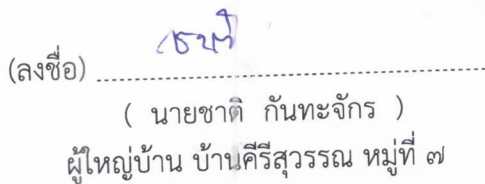 (ลงชื่อ) ........................................................
( นายชาติ กันทะจักร )
ผู้ใหญ่บ้าน บ้านคีรีสุวรรณ หมู่ที่ ๗